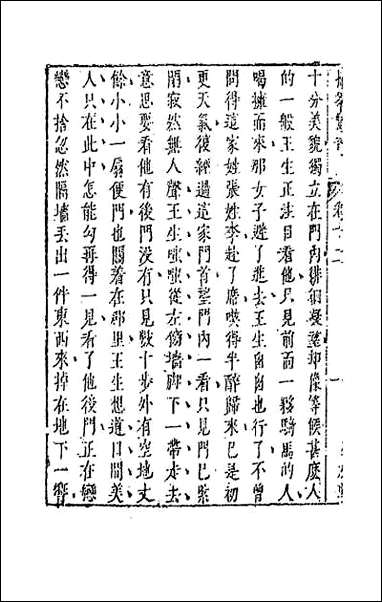 十分美貌獨立在門內徘徊凝望却像等候甚麽人
的一般王生正注目看他只見前面一夥騎馬的人
喝擁而來那女子避了進去王生匆匆也行了不曾
問得這家姓張姓李赴了席喫得半醉歸來已是初
更天氣復經過這家門首望門內一看只見門已緊
閉寂然無人聲王生嗤嗤從左傍墻脚下一帶走去
意思要看他有後門沒有只見數十步外有空地丈
餘小小一扇便門也關着在那里王生想道日間美
人只在此中怎能勾再得一見看了他後門正在戀
戀不捨忽然隔墻丟出一件東西來掉在地下一響